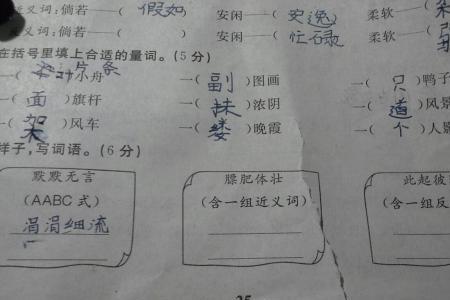 近义词:倘若——( 假如 安闲——( 安逸 ) 柔软——(
反义词:倘若——( ) 安闲——( 忙碌 ) 柔软——(
在括号里填上合适的量词。(5分)
一( 条 )小舟 一( 副 )图画 一( 只 )鸭子
( 面 )旗杆 一( 抹 )浓阴 一( 道 )风景
( 架 )风车 一( 缕 )晚霞 一( 个 )人影
样子,写词语。(6分)
默默无言 膘肥体壮 此起彼
(AABC式) (含一组近义词) (含一组反
涓涓细流
35